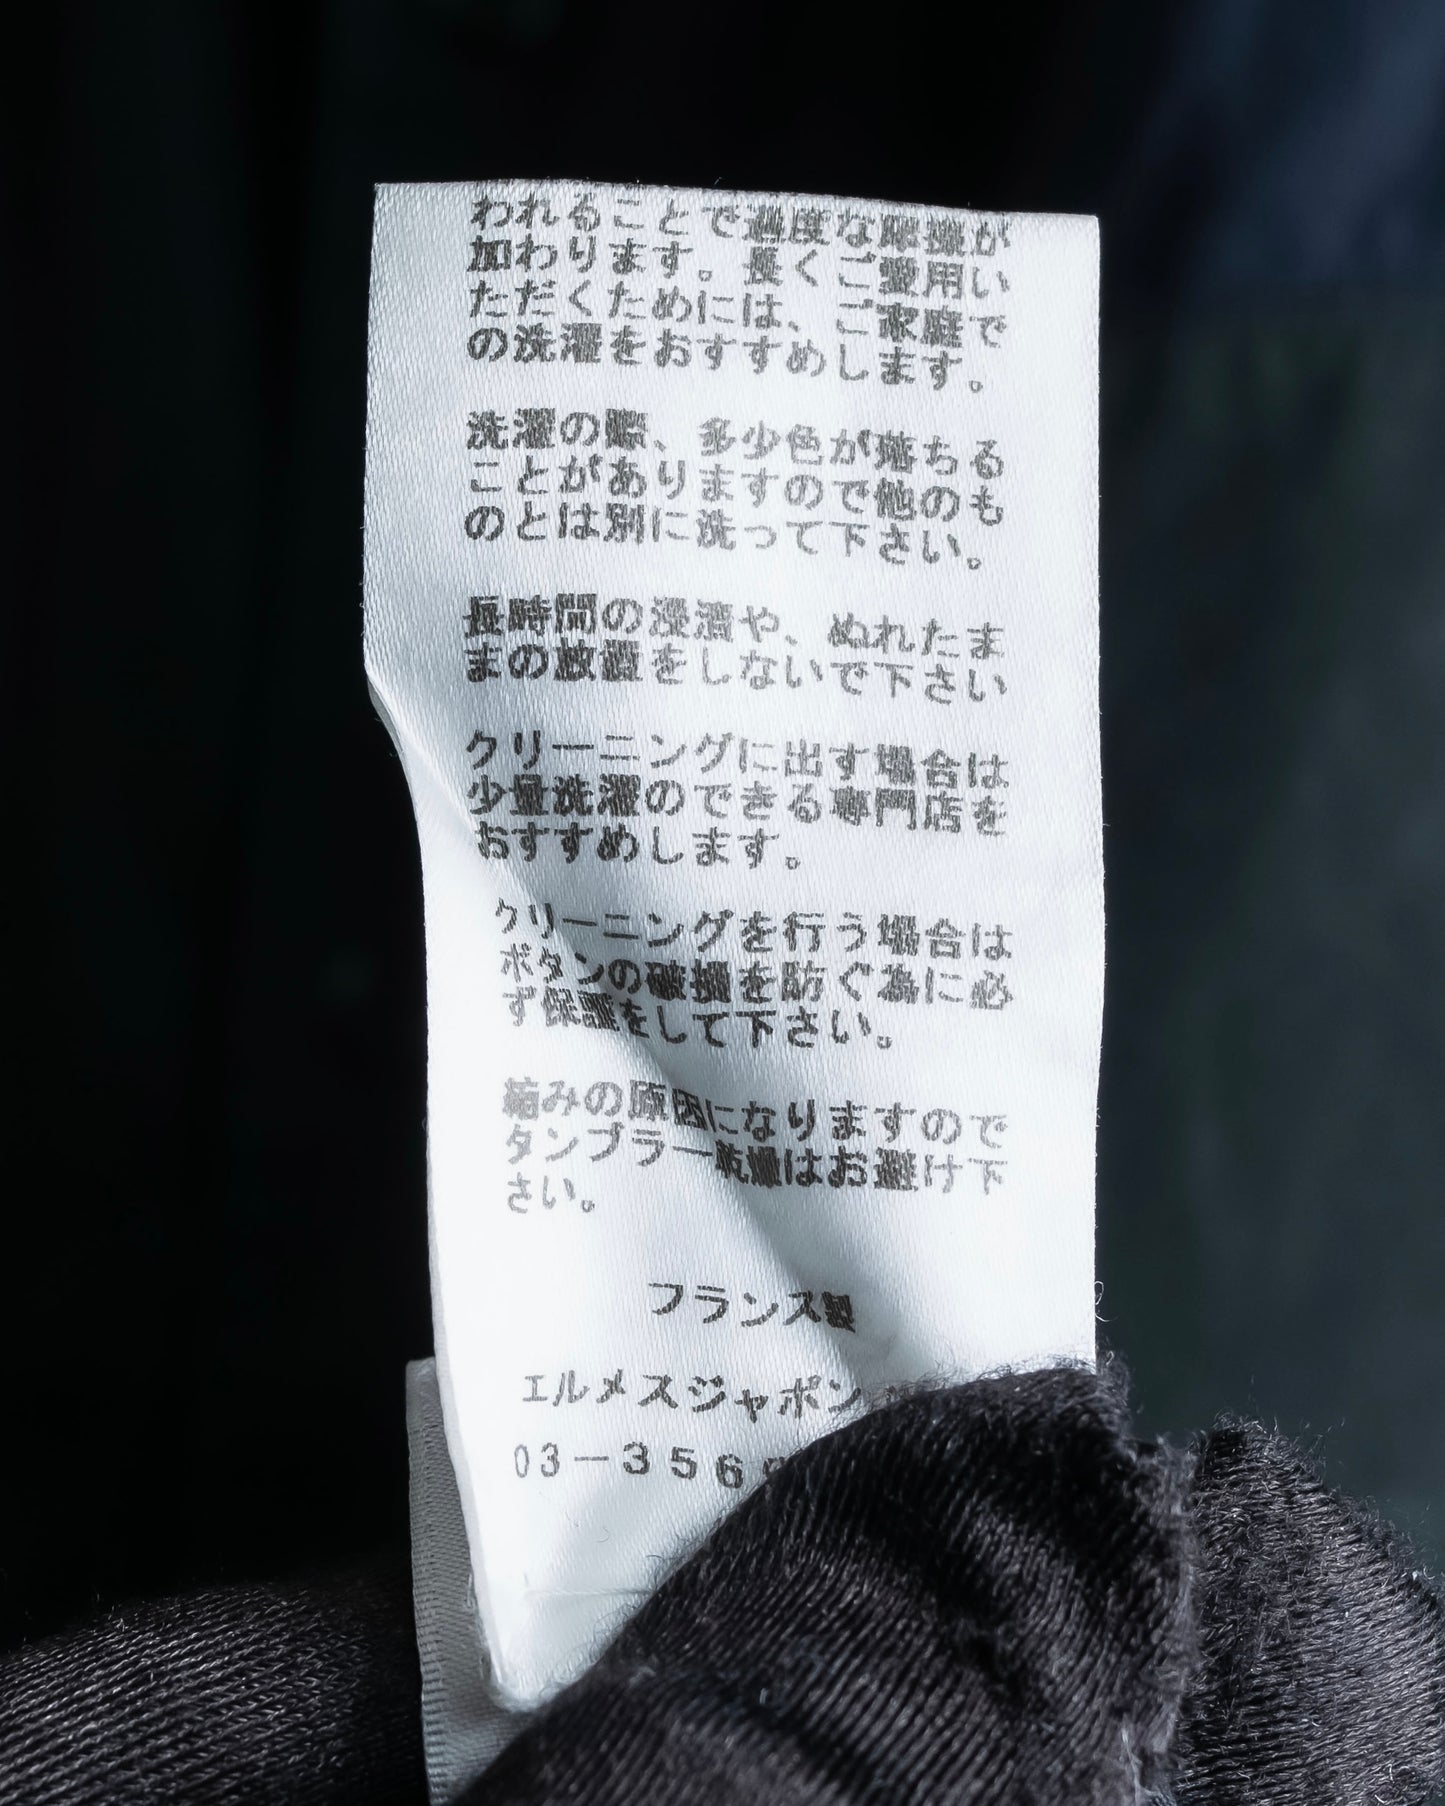 われることで過度な摩擦が
加わります。長くご愛用い
ただくためには、ご家庭で
の洗濯をおすすめします。
洗濯の際、多少色が落ちる
ことがありますので他のも
のとは別に洗って下さい。
長時間の浸漬や、ぬれたま
まの放置をしないで下さい
クリーニングに出す場合は
少量洗濯のできる専門店を
おすすめします。
クリーニングを行う場合は
ボタンの破損を防ぐ為に必
ず保護をして下さい。
縮みの原因になりますので
タンブラー乾燥はお避け下
さい。
フランス製
エルメスジャポン
03-356